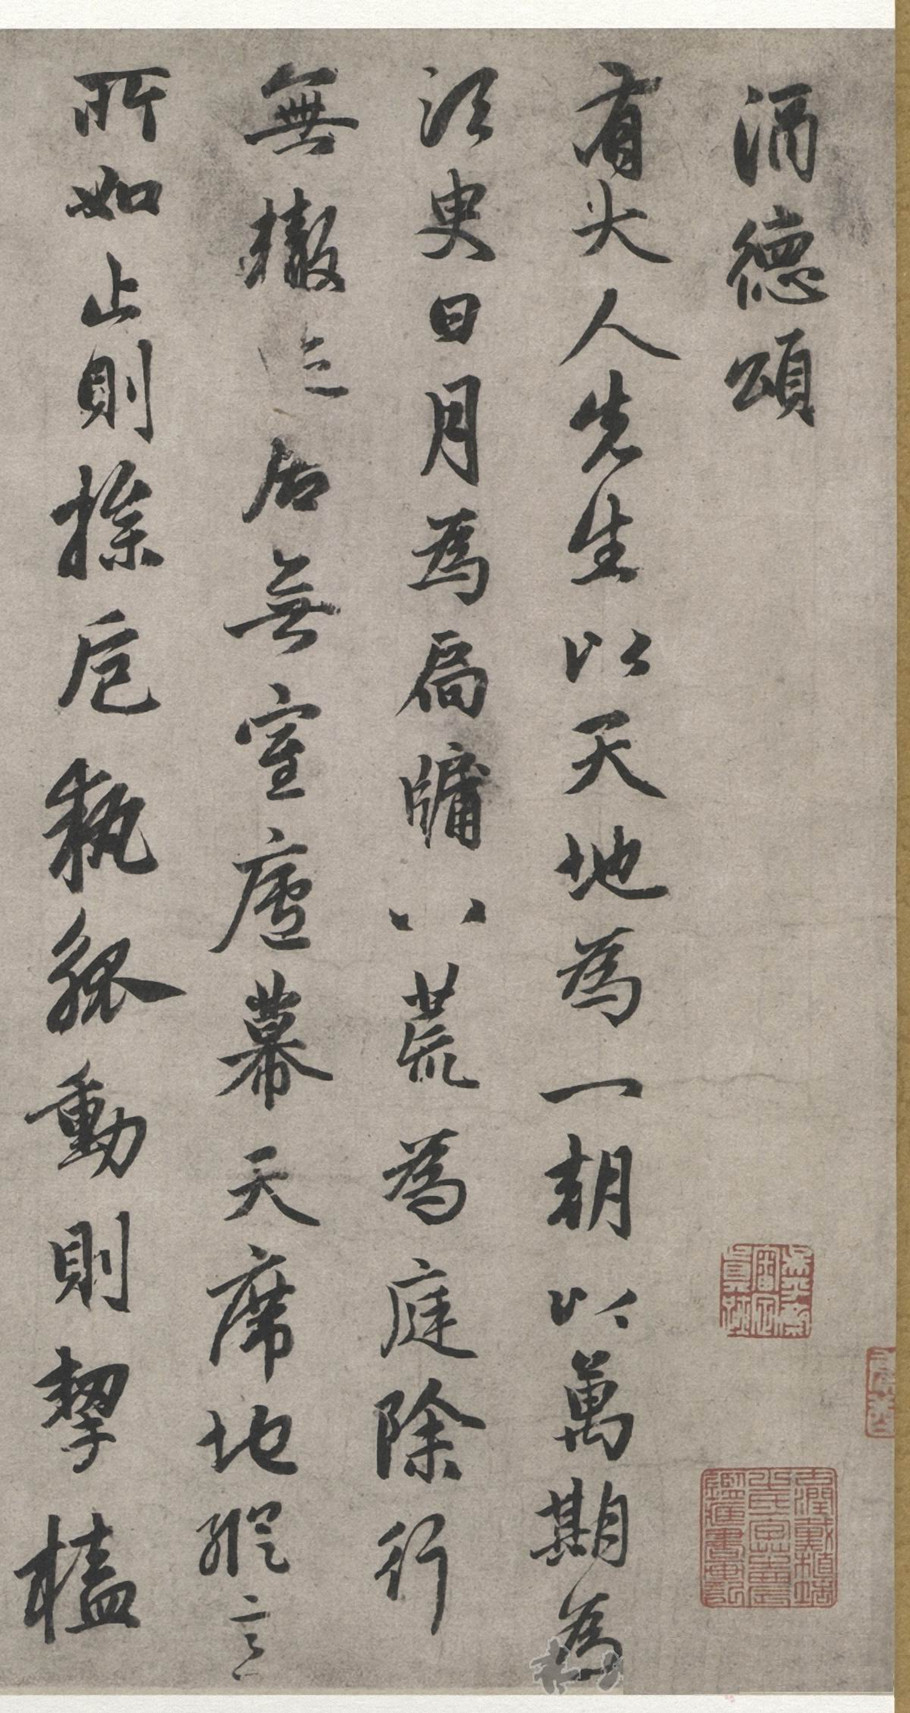 酒德頌
有大人先生以天地為一朝以萬期為
須臾日月為扃牖八荒為庭除行
無轍跡居無室廬幕天席地縱意
所如止則操卮執觚動則挈榼